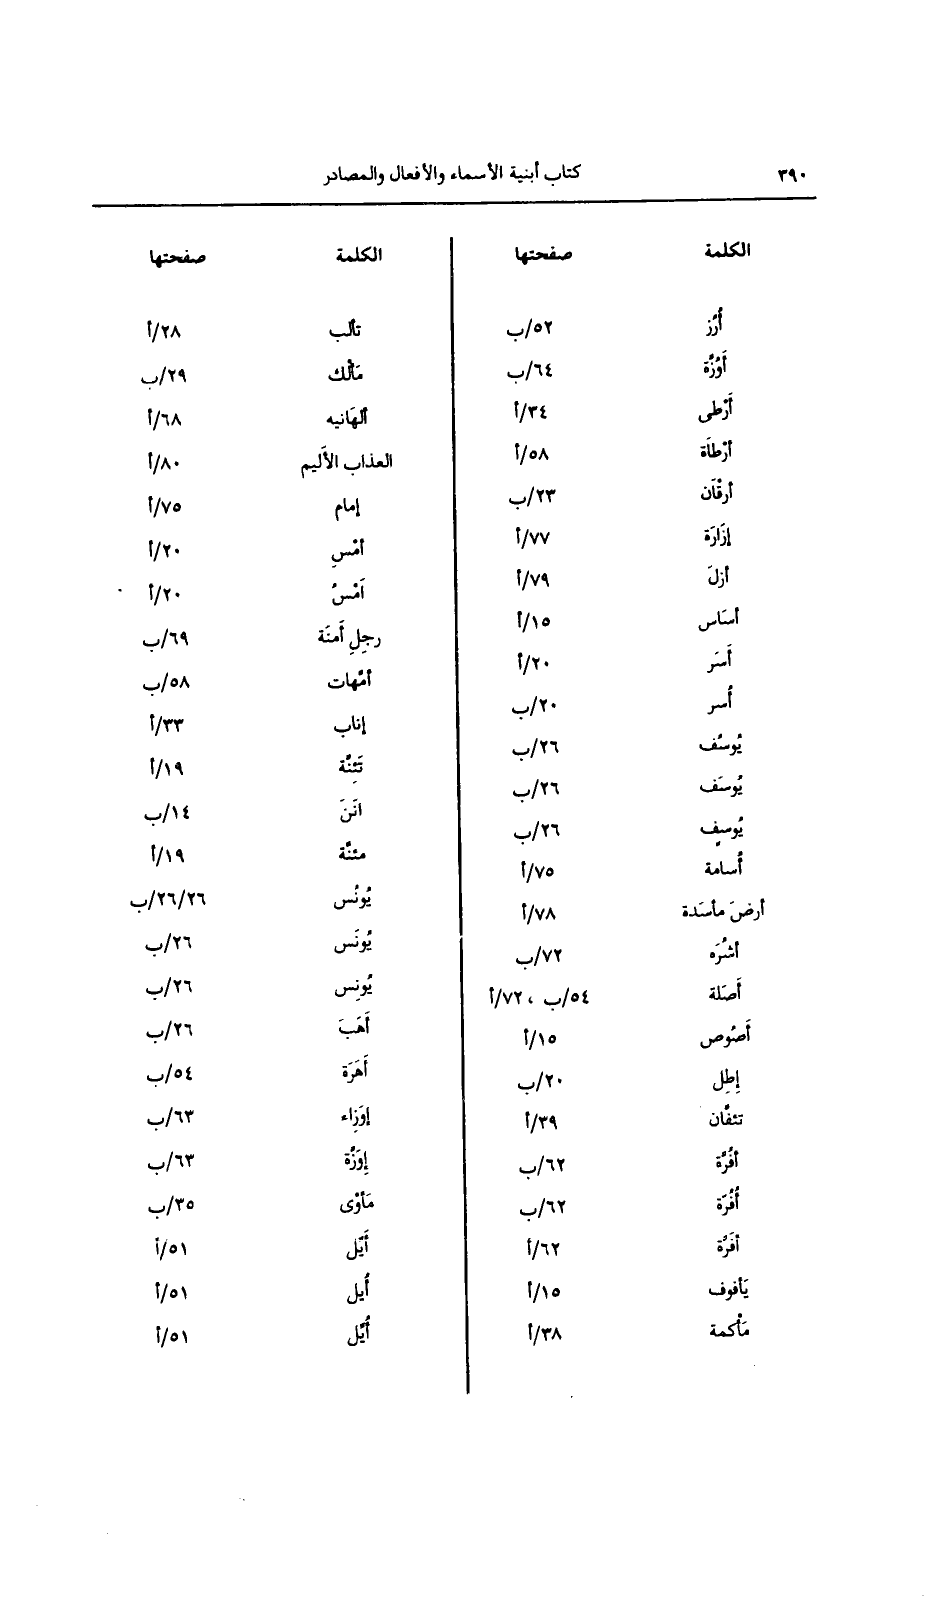 ٣٩٠ كتاب أبنية الأسماء والأفعال والمصادر
الكلمة صفحتها
أُرُز ٥٢/ب
أَوُزَّة ٦٤/ب
أَرْطى ٣٤/أ
أرْطاَة ٥٨/أ
أرقْاَن ٢٣/ب
إزَارَة ٧٧/أ
أزلَ ٧٩/أ
أسَاس ١٥/أ
أَسَر ٢٠/أ
أُسر ٢٠/ب
يُوسُف ٢٦/ب
يُوسَف ٢٦/ب
يُوسِف ٢٦/ب
أُسامة ٧٥/أ
أرضَ مأسَدة ٧٨/أ
أشُرَه ٧٢/ب
أَصَلة ٥٤/ب ، ٧٢/أ
أَصُوص ١٥/أ
إطِل ٢٠/ب
تئفَّان ٣٩/أ
أفُرَّة ٦٢/ب
أُفُرَّة ٦٢/ب
أفَرَّة ٦٢/أ
يَأفوف ١٥/أ
مَأْكمة ٣٨/أ
الكلمة صفحتها
تألب ٢٨/أ
مَألْك ٢٩/ب
ألهَانيه ٦٨/أ
العذاب الأَليم ٨٠/أ
إمام ٧٥/أ
أمْسِ ٢٠/أ
اَمْسُ ٢٠/أ
رجلِ أَمنَة ٦٩/ب
أمَّهات ٥٨/ب
إناب ٣٣/أ
تَئِنَّة ١٩/أ
انَنَ ١٤/ب
مئنَّة ١٩/أ
يُونُس ٢٦/٢٦/ب
يُونَس ٢٦/ب
يُونِس ٢٦/ب
أَهَبَ ٢٦/ب
أَهَرَة ٥٤/ب
إوَزِاء ٦٣/ب
إوَزَّة ٦٣/ب
مَأوْى ٣٥/ب
أَيّل ٥١/أ
أُيل ٥١/أ
أُيَّل ٥١/أ